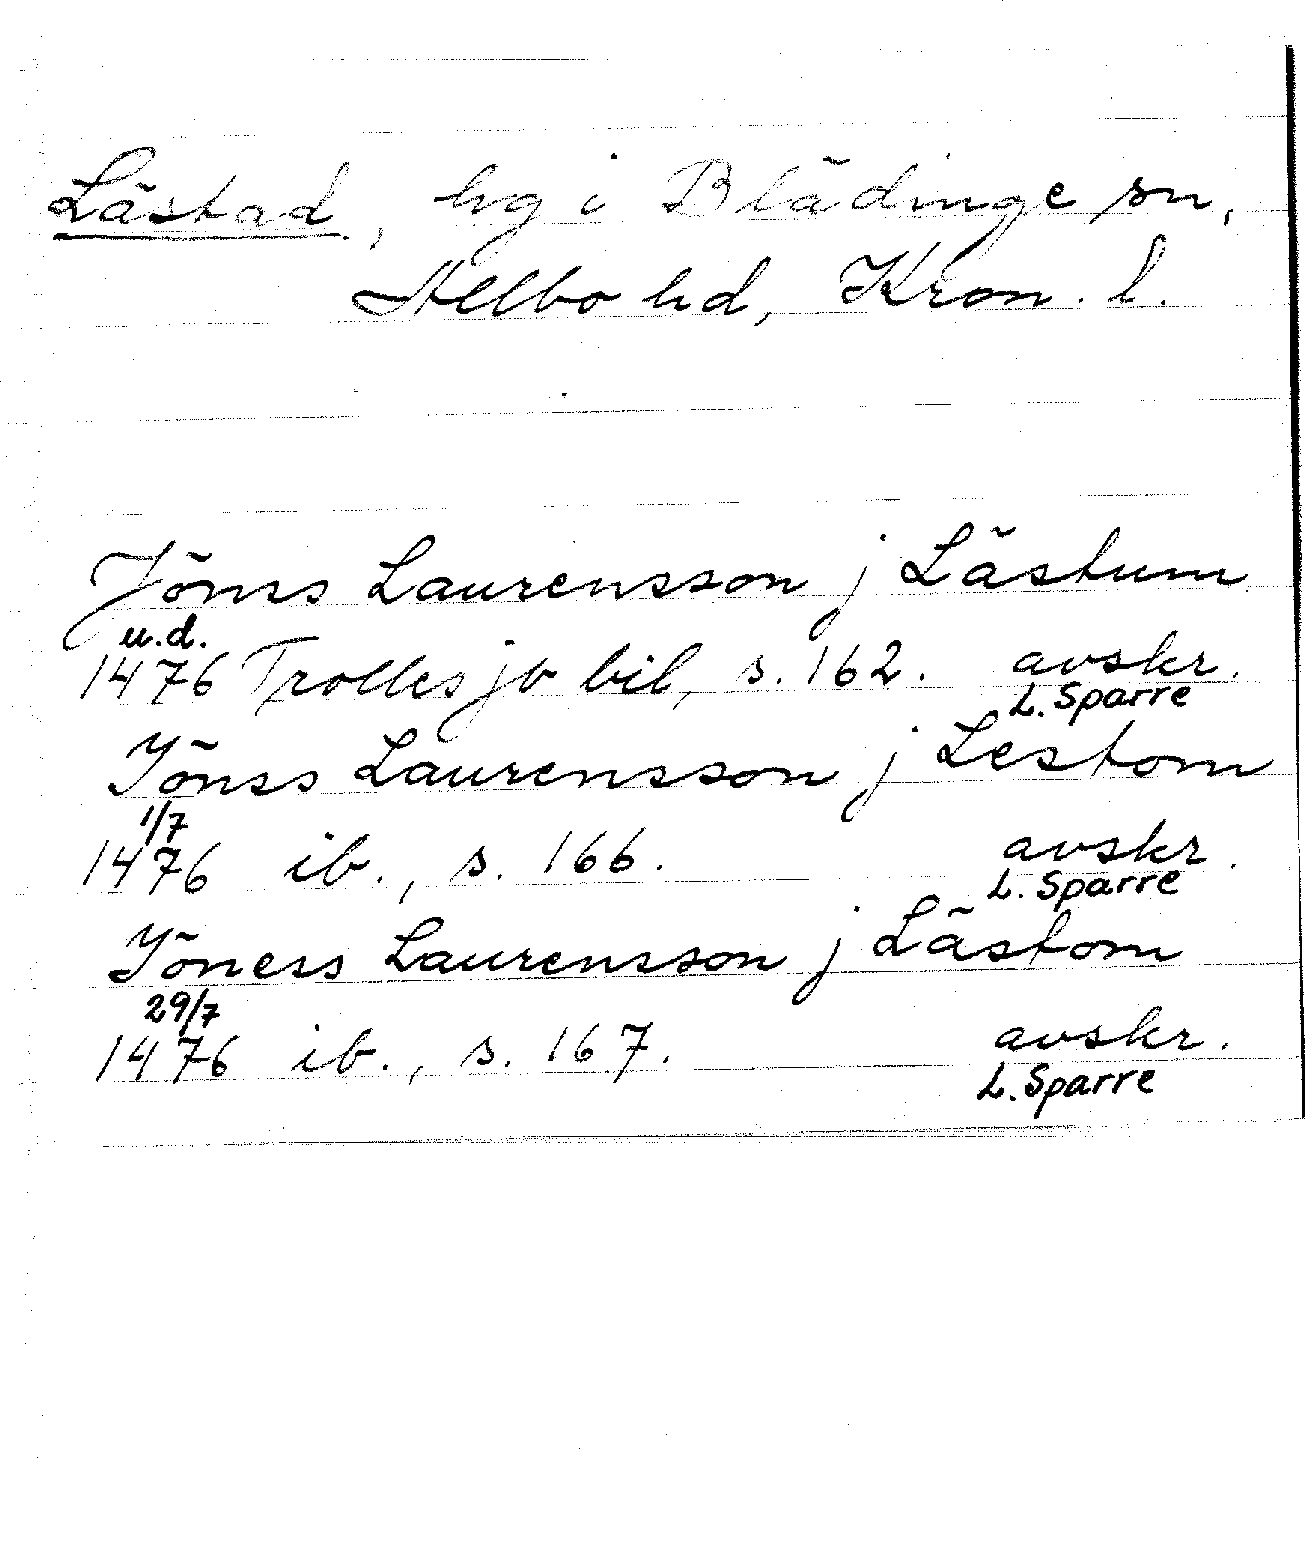 Lästad, hg i Blädinge sn,
Allbo hd, Kron. l.
Jöns Laurensson j Lästum
u.d.
1476 Trolles jb bil, s. 162. avskr.
L. Sparre
Jönss Laurensson j Lestom
1/7
1476 ib., s. 166. avskr.
L. Sparre
Jöness Laurensson j Lästom
29/7
1476 ib., s. 167. avskr.
L. Sparre